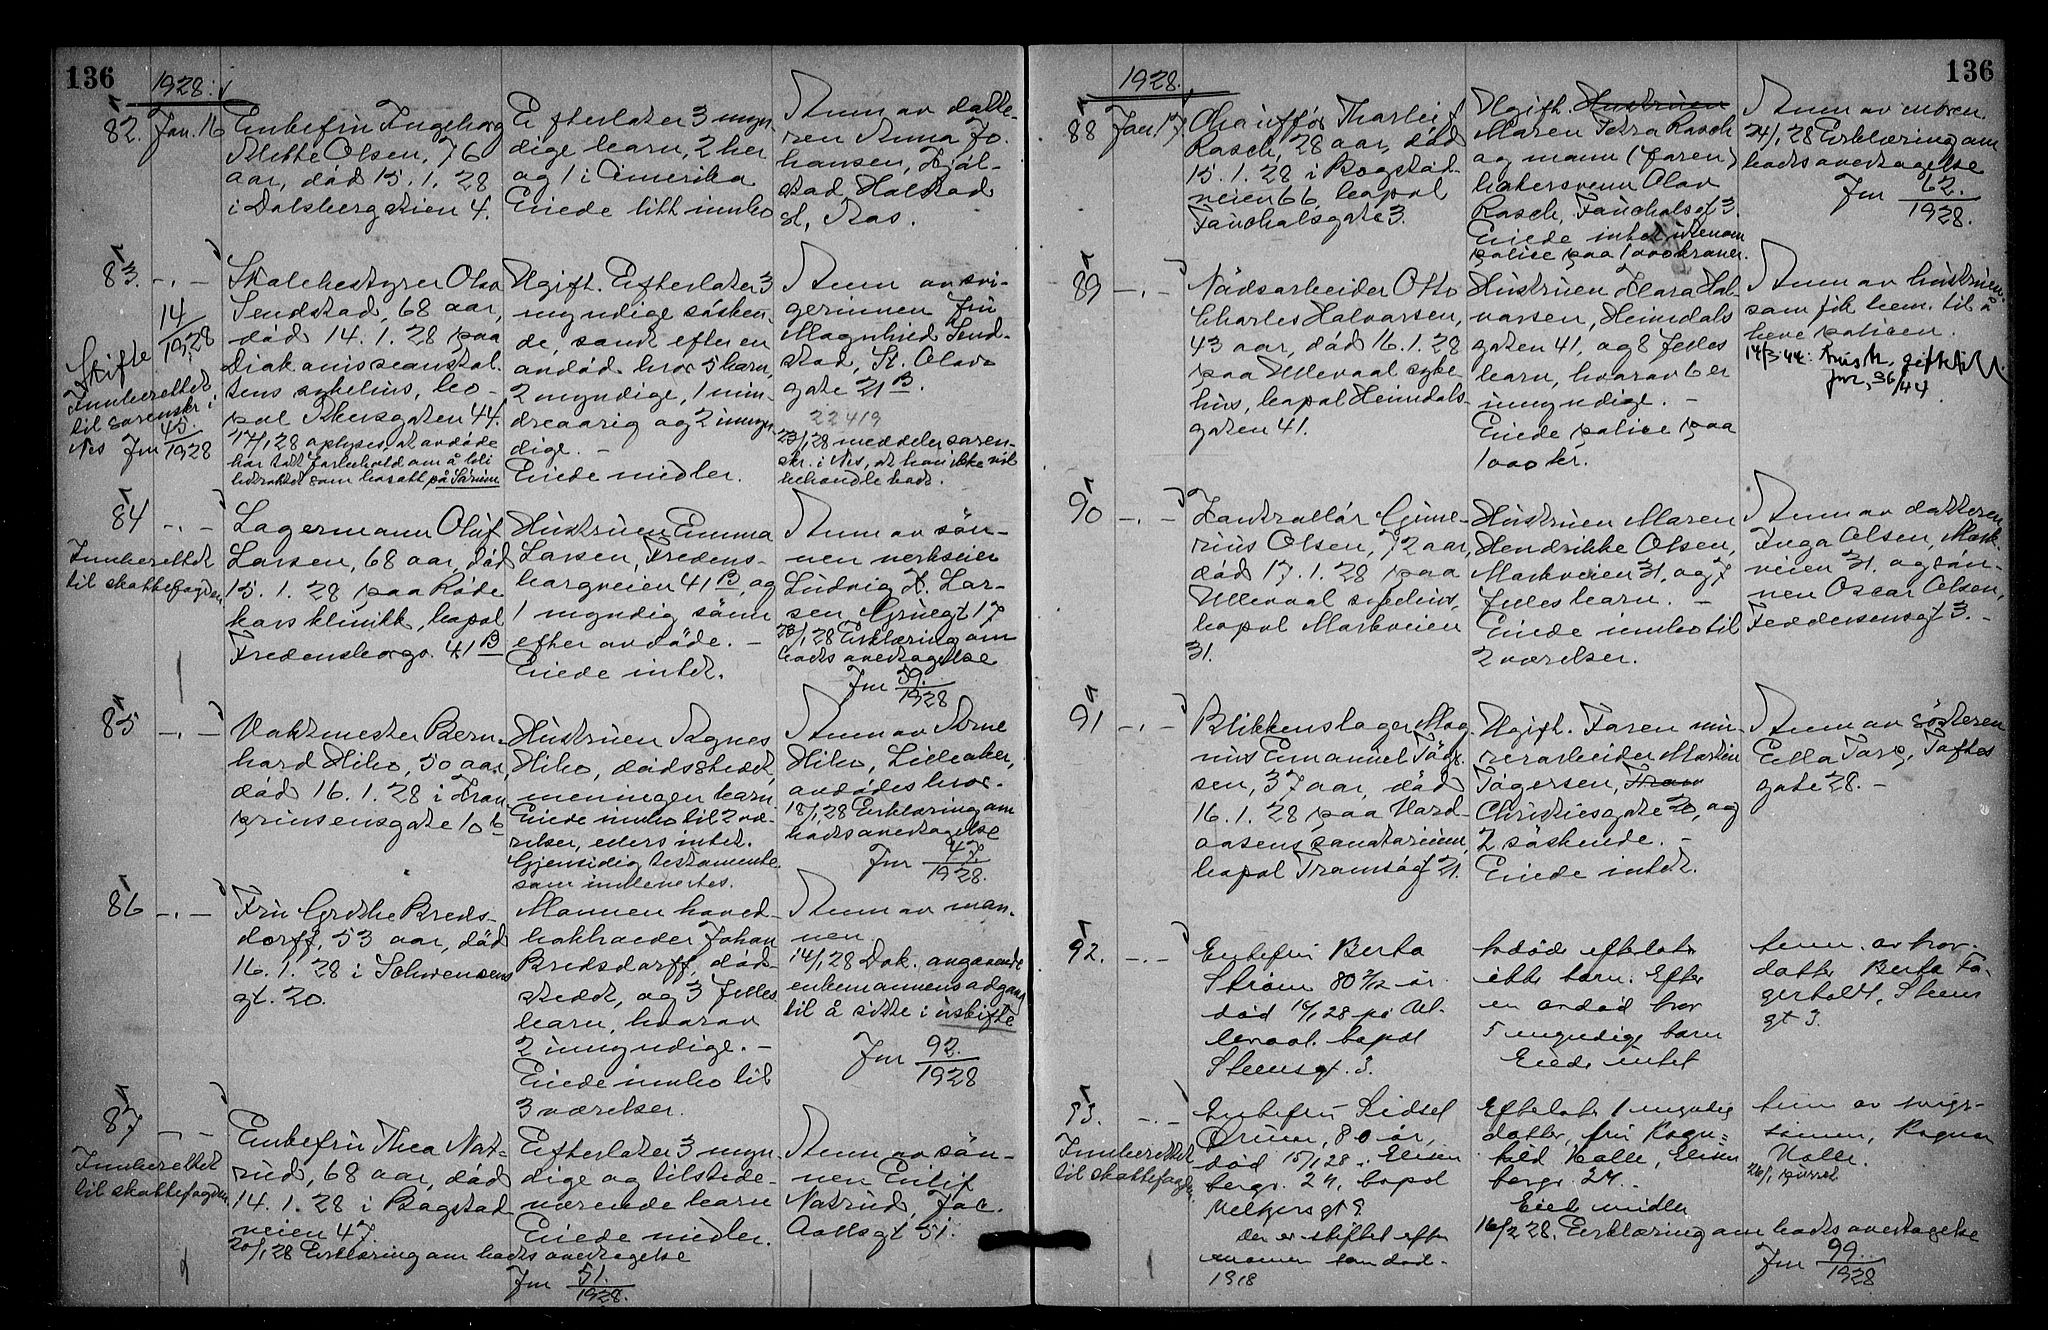 136
1928.
82. Jan. 16
Enkefru Ingeborg
Mette Olsen, 76
aar, död 15. 1. 28
i Dalsbergstien 4.
Efterlater 3 myn-
dige barn, 2 her
og 1 i Amerika
Eiede litt innbo
Anm av datte-
ren Anna Jo-
hansen,
stad Halstad
st, Aas.
83. -.-
14/1928
Skifte
Innberettet
til sorenskr. i
Nes Jnr 45/1928
Skolebestyrer Olav
Sendstad, 68 aar,
död 14. 1. 28 paa
Diakonisseanstal-
tens sykehus, bo-
pæl Akersgaten 44.
17/1 28 oplyses, at avdöde
har tatt forbehold om å bli
betraktet som bosatt på Sörum
Ugift. Efterlater 3
myndige sösken-
de, samt efter en
avdöd bror 5 barn,
2 myndige, 1 min-
dreaarig og 2 umyn-
dige. -
Eiede midler.
Anm av svi-
gerinnen Fru
Magnhild Send-
stad, St. Olavs
gate 21 B.
22419
23/1 28 meddeler soren-
skr. i Nes, at han ikke vil
behandle boet.
84 -.-
Innberettet
til skattefogden
Lagermann Oluf
Larsen, 68 aar, död
15. 1. 28 paa Röde
kors klinikk, bopæl
Fredensborgv. 41 B
Hustruen Emma
Larsen, Fredens-
borgveien 41 B, og
1 myndig sönn
efter avdöde. -
Eiede intet.
Anm av sön-
nen verkseier
Ludvig H. Lar-
sen Grünegt 17
23/1 28 Erklæring om
boets overtagelse
Jnr 59./1928
85 -.-
Vaktmester Bern-
hard Hiho, 50 aar,
död 16. 1. 28 i Kron
prinsensgate 10 b
Hustruen Agnes
Hiho, dödsstedet,
meningen barn.
Eiede innbo til 2 væ-
relser, ellers intet.
Gjensidig testamente
som innlevertes.
Anm av Arne
Hiho, Lilleaker,
avdödes bror.
18/1 28 Erklæring om
boets overtagelse
Jnr 47./1928.
86 -.-
Fru Grethe Breds-
dorff, 53 aar, död
16. 1. 28 i Schwensens
gt. 20.
Mannen hoved-
bokholder Johan
Bredsdorff, död-
stedet, og 3 felles
barn, hvorav
2 umyndige. -
Eiede innbo til
3 værelser.
Anm av man-
nen
14/1 28 Dok. angaaende
enkemannens adgang
til å sitte i uskifte
Jnr 92./1928
87 -.-
Innberettet
til skattefogden
Enkefru Thea Nat-
rud, 68 aar, död
14. 1. 28 i Bogstad
veien 47.
20/1 28 Erklæring om boets overtagelse
Jnr 51./1928.
Efterlater 3 myn-
dige og tilstede-
værende barn
Eiede midler.
Anm av sön-
nen Eilif
Natrud, Jac.
Aallsgt 51.
136
1928.
88 Jan 17.
Chauffør Thorleif
Rasch, 28 aar, död
15. 1. 28 i Bogstad-
veien 66, bopæl
Fauchalsgate 3.
Ugift. Hustruen
Maren Petra Rasch
og mann (Faren)
bakersvenn Olav
Rasch, Fauchalsgt 3.
Eiede intet utenom
polise paa 1000 kroner.
Anm av moren.
24/1 28 Erklæring om
boets overtagelse
Jnr 62./1928.
89 -.-
Nödsarbeider Otto
Charles Halvorsen,
43 aar, död 16. 1. 28
paa Ullevaal syke
hus, bopæl Heimdals-
gaten 41.
Hustruen Klara Hal-
vorsen, Heimdals
gaten 41, og 8 felles
barn, hvorav 6 er
umyndige. -
Eiede polise paa
1000 kr.
Anm av hustruen.
som fik bem. til å
heve polisen.
14/3 44. Ensk. giftefl
Jnr, 36/44
90 -.-
Kontrollör Gune-
rius Olsen, 72 aar,
död 17. 1. 28 paa
Ullevaal sykehus,
bopæl Markveien
31.
Hustruen Maren
Hendrikke Olsen,
Markveien 31, og 7
felles barn. -
Eiede innbo til
2 værelser.
Anm av datteren
Inga Olsen, Mark-
veien 31, og sön-
nen Oscar Olsen,
Feddersensgt 3. -
91 -.-
Blikkenslager Mag
nus Emanuel Töger-
sen, 37 aar, död
16. 1. 28 paa Vard-
aasens sanatorium,
bopæl Tromsögt 21.
Ugift. Faren mu-
rerarbeider Martin
Tögersen,
Christiesgate 20, og
2 söskende. -
Eiede intet.
Anm av sösteren
Ella Torp, Toftes
gate 28. -
92. -.-
Enkefru Berta
Ström 80 1/2 år.
död 16/1 28 på Ul-
levaal. bopæl
Steensgt. 3.
Avdöde efterlot
ikke barn. Efter
en avdöd bror
5 myndige barn
Eiede intet
Anm. av bror-
datter Berta Fa-
gerholt, Steens
gt 3.
93. -.-
Innberettet
til skattefogden
Enkefru Sidsel
Bruun, 80 år,
död 15/1 28 i Eilert
bergv. 24, bopæl
Meltzersgt 9.
Der er skiftet efter
mannen som död-
1918
Efterlater 1 myndig
datter, fru Ragn-
hild Kolle,
bergv. 24. -
Eiede midler
16/2 28. Erklæring om boets overtagelse
Jnr 99./1928
Anm av sviger-
sönnen, Ragnar
Kolle.
26/1 purret